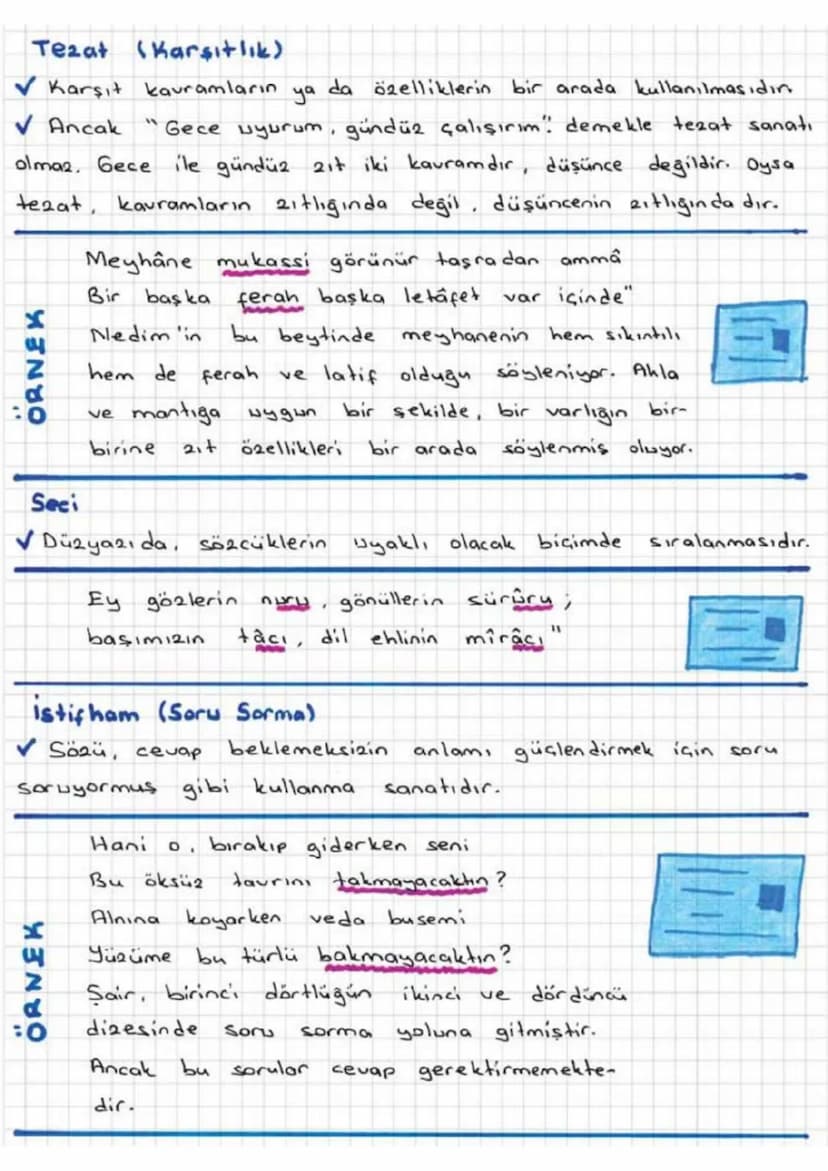 Tezat (Karşıtlık)
✓ Karşıt kavramların ya da özelliklerin bir arada kullanılmasıdır.
✓ Ancak "Gece uyurum, gündüz çalışırım". demekle tezat sanatı
olmaz. Gece ile gündüz zıt iki kavramdır, düşünce değildir. Oysa
tezat, kavramların zıtlığında değil, düşüncenin zıtlığında dır.
ÖRNEK
Meyhâne mukassi görünür taşradan ammâ
Bir başka ferah başka letâfet var içinde"
Nedim'in bu beytinde meyhanenin hem sıkıntılı
hem de ferah ve latif olduğu söyleniyor. Akla
ve mantığa uygun bir şekilde, bir varlığın bir-
birine zıt özellikleri bir arada söylenmiş oluyor.
Seci
✓ Düzyazıda, sözcüklerin uyaklı olacak biçimde sıralanmasıdır.
Ey gözlerin nuru, gönüllerin sürûru;
başımızın tâcı, dil ehlinin mîrâcı"
İstifham (Soru Sorma)
✓ Sözü, cevap beklemeksizin anlamı güçlendirmek için soru
soruyormuş gibi kullanma sanatıdır.
ÖRNEK
Hani o, bırakıp giderken seni
Bu öksüz tavrını takmayacaktın?
Alnına koyarken veda busemi
Yüzüme bu türlü bakmayacaktın?
Şair, birinci dörtlüğün ikinci ve dördüncü
dizesinde soru sorma yoluna gitmiştir.
Ancak bu sorular cevap gerektirmemekte-
dir.